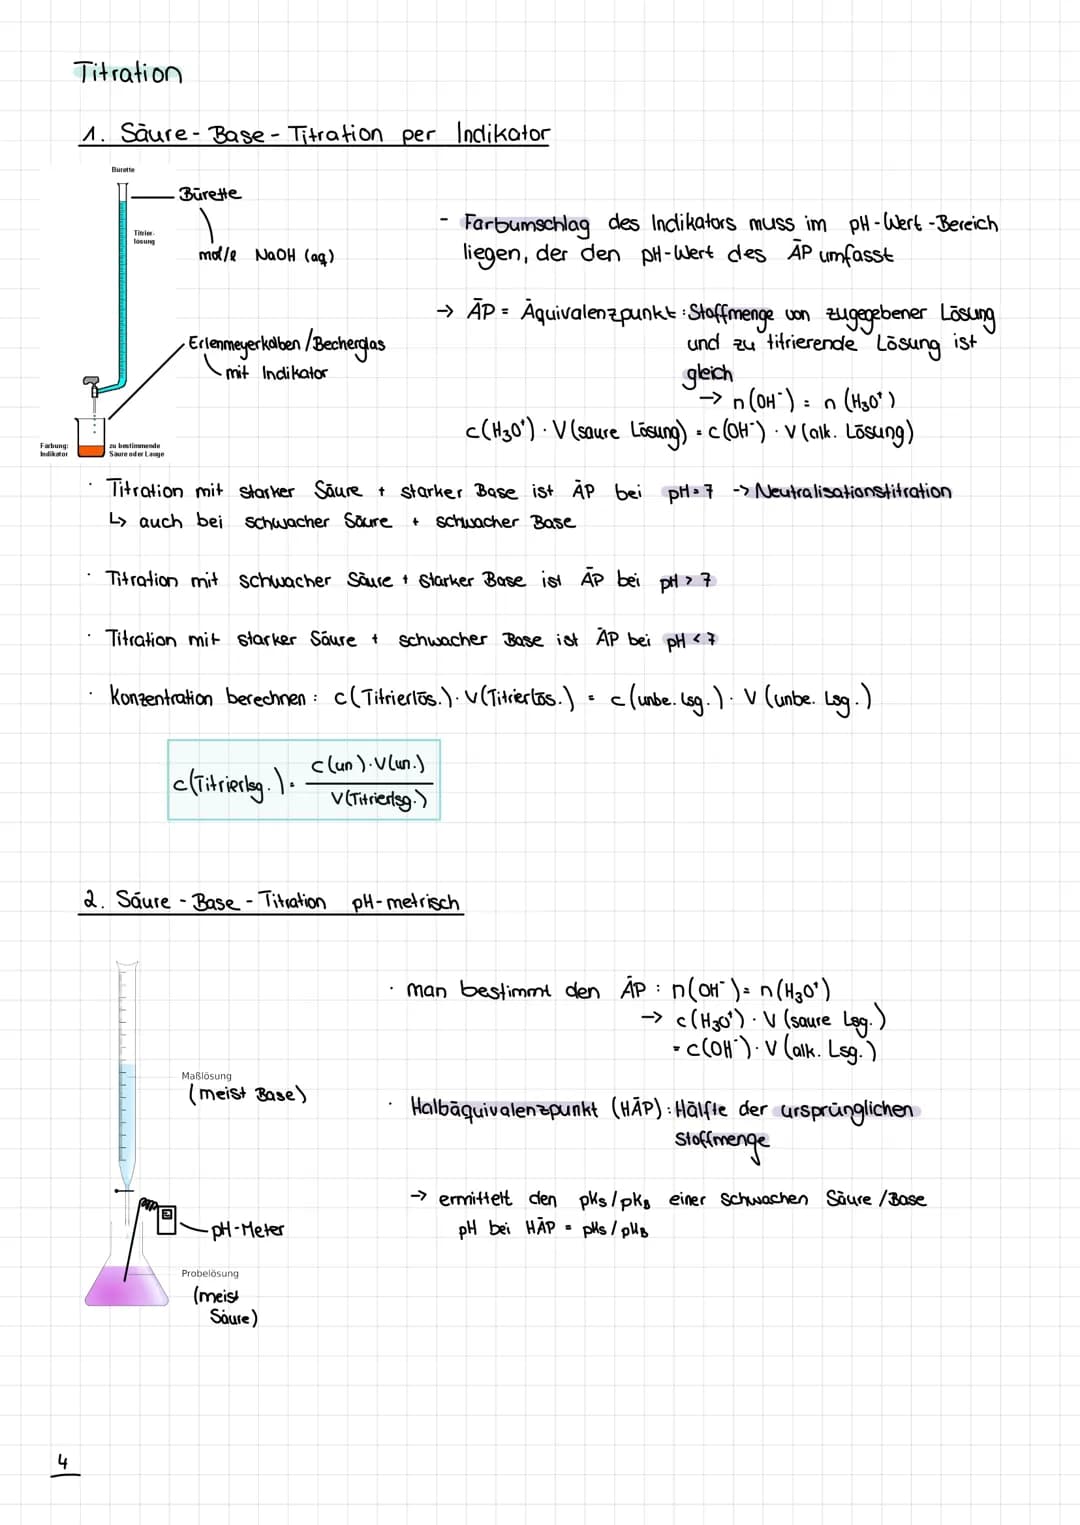 Titration
1. Säure-Base-Titration per Indikator
Burette
Bürette
Titrier-
lösung
mol/l NaOH (aq)
- Farbumschlag des Indikators muss im pH-Wert-Bereich
liegen, der den pH-Wert des ÄP umfasst
→ ÄP = Äquivalenzpunkt: Stoffmenge von zugegebener Lösung
und zu titrierende Lösung ist
gleich
→ n(OH⁻) = n(H₃O⁺)
Erlenmeyerkolben/Becherglas
mit Indikator
c(H₃O⁺) · V(saure Lösung) = c(OH⁻) · V(alk. Lösung)
Färbung:
Indikator
zu bestimmende
Säure oder Lauge
· Titration mit starker Säure + starker Base ist ÄP bei pH=7 -> Neutralisationstitration
↳ auch bei schwacher Säure + schwacher Base
· Titration mit schwacher Säure + starker Base ist ÄP bei pH > 7
· Titration mit starker Säure + schwacher Base ist ÄP bei pH < 7
· Konzentration berechnen: c(Titrierlös.) · V(Titrierlös.) = c(unbe. Lsg.) · V(unbe. Lsg.)
c(Titrierlsg.) = c(un) · V(un.)
V(Titrierlsg.)
2. Säure-Base-Titration pH-metrisch
· man bestimmt den ÄP: n(OH⁻) = n(H₃O⁺)
→ c(H₃O⁺) · V(saure Lsg.)
= c(OH⁻) · V(alk. Lsg.)
Maßlösung
(meist Base)
· Halbäquivalenzpunkt (HÄP): Hälfte der ursprünglichen
Stoffmenge
→ ermittelt den pKs/pKB einer schwachen Säure/Base
pH bei HÄP = pKs/pKB
pH-Meter
Probelösung
(meist
Säure)
4